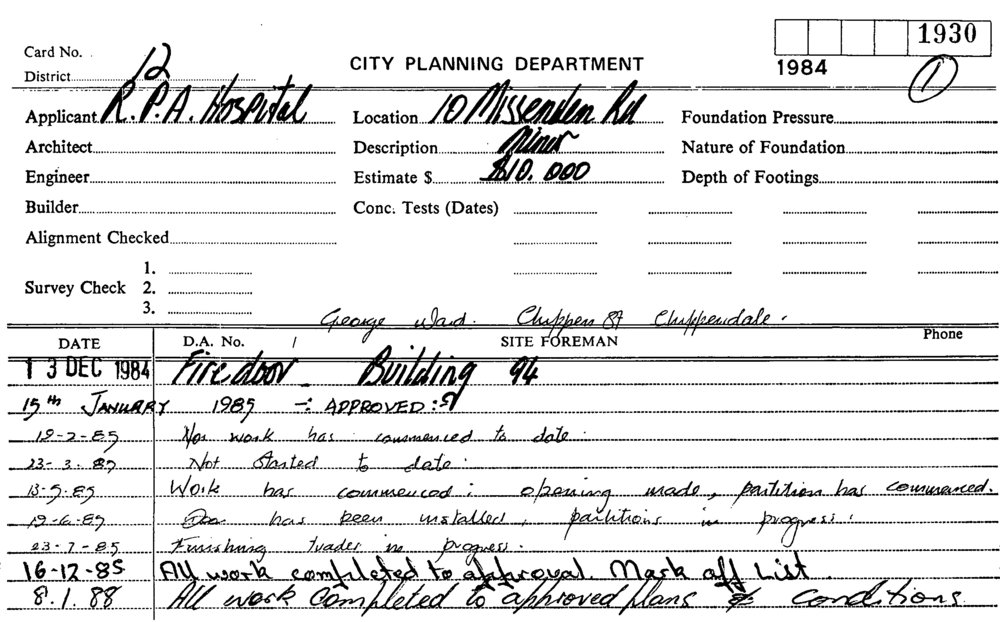 1930
Card No.
District 12
CITY PLANNING DEPARTMENT
1984
1
Applicant R.P.A. Hospital
Location 10 Missenden Rd
Foundation Pressure
Architect
Description Minor
Nature of Foundation
Engineer
Estimate $ $10.000
Depth of Footings
Builder
Conc. Tests (Dates)
Alignment Checked
Survey Check
1.
2.
3.
George Ward. Chippen St Chippendale.
DATE D.A. No. SITE FOREMAN Phone
13 DEC 1984 Fire door Building 94
15th JANUARY 1985 -: APPROVED:
19-2-85 Nor work has commenced to date.
23-3-85 Not Started to date.
13-5-85 Work has commenced: opening made, partition has commenced.
19-6-85 Door has been installed, partitions in progress.
23-7-85 Finishing trades in progress.
16-12-85 All work completed to approval. Mark off List.
8.1.88 All work completed to approved plans & conditions.